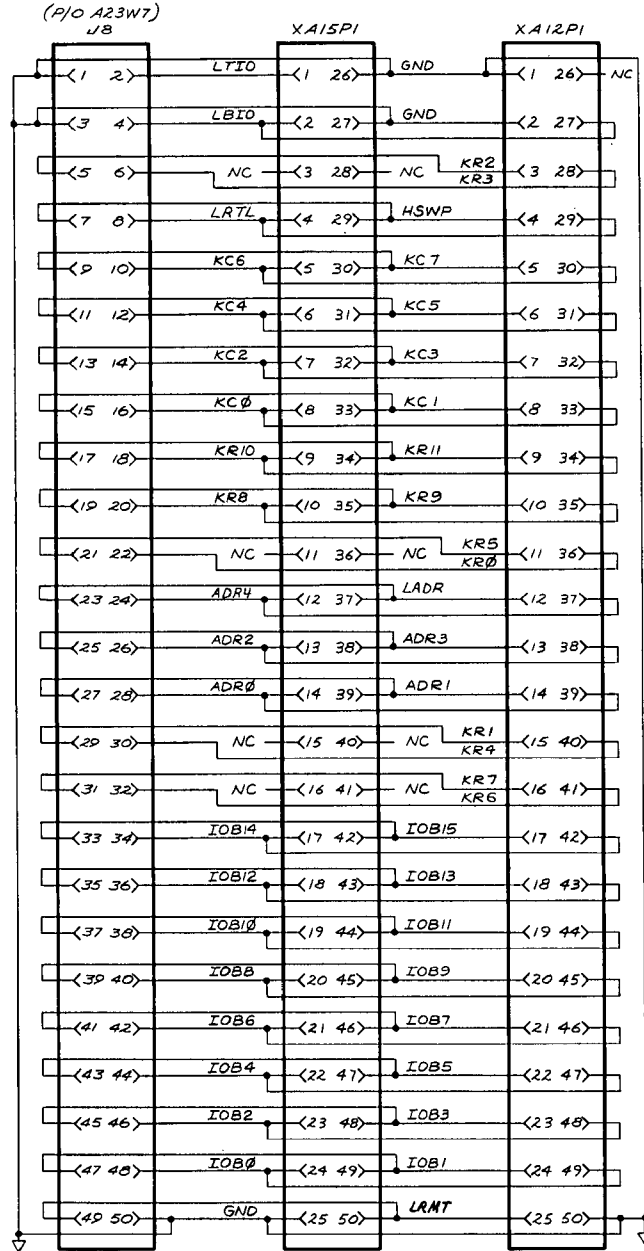 (P/O A23W7)
J8 XA15P1 XA12P1
1 2 LTIO 1 26 GND 1 26 NC
3 4 LBIO 2 27 GND 2 27
5 6 NC 3 28 NC KR2 3 28
KR3
7 8 LRTL 4 29 HSWP 4 29
9 10 KC6 5 30 KC7 5 30
11 12 KC4 6 31 KC5 6 31
13 14 KC2 7 32 KC3 7 32
15 16 KCØ 8 33 KC1 8 33
17 18 KR10 9 34 KR11 9 34
19 20 KR8 10 35 KR9 10 35
21 22 NC 11 36 NC KR5 11 36
KRØ
23 24 ADR4 12 37 LADR 12 37
25 26 ADR2 13 38 ADR3 13 38
27 28 ADRØ 14 39 ADR1 14 39
29 30 NC 15 40 NC KR1 15 40
KR4
31 32 NC 16 41 NC KR7 16 41
KR6
33 34 IOB14 17 42 IOB15 17 42
35 36 IOB12 18 43 IOB13 18 43
37 38 IOB1Ø 19 44 IOB11 19 44
39 40 IOB8 20 45 IOB9 20 45
41 42 IOB6 21 46 IOB7 21 46
43 44 IOB4 22 47 IOB5 22 47
45 46 IOB2 23 48 IOB3 23 48
47 48 IOBØ 24 49 IOB1 24 49
49 50 GND 25 50 LRMT 25 50